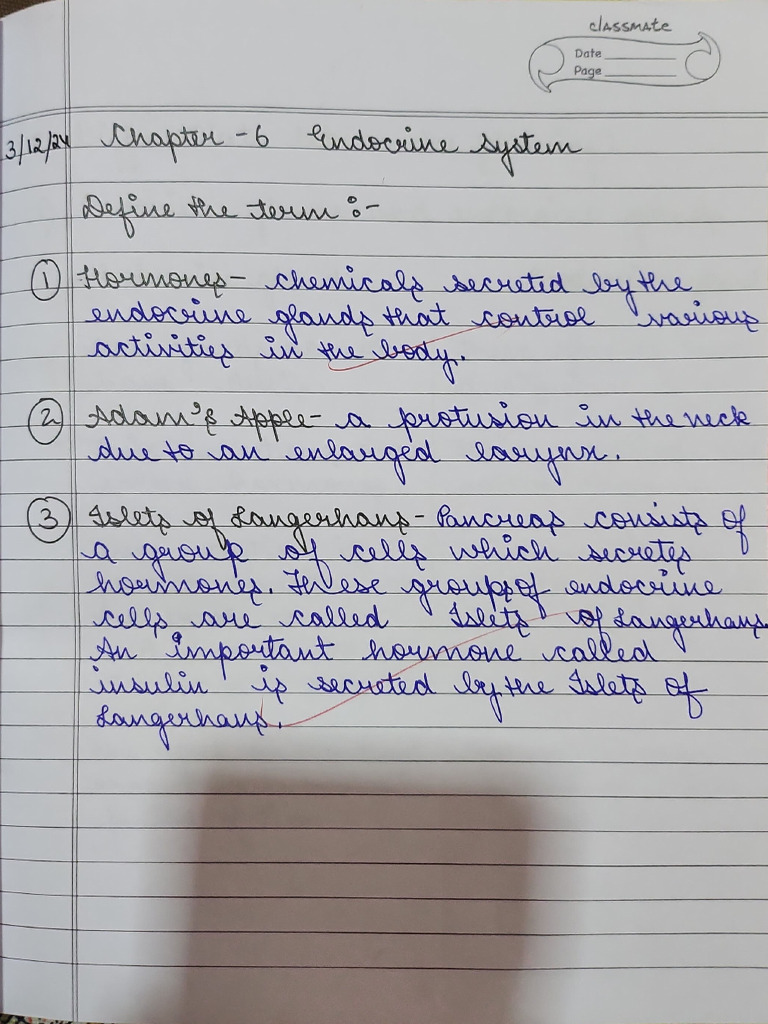 classmate
Date
Page
3/12/24 Chapter - 6 Endocrine System
Define the term :-
1 Hormones - chemicals secreted by the
endocrine glands that control various
activities in the body.
2 Adam's Apple - a protusion in the neck
due to an enlarged larynx.
3 Islets of Langerhans - Pancreas consists of
a group of cells which secretes
hormones. These groups of endocrine
cells are called Islets of Langerhans
An important hormone called
insulin is secreted by the Islets of
Langerhans.